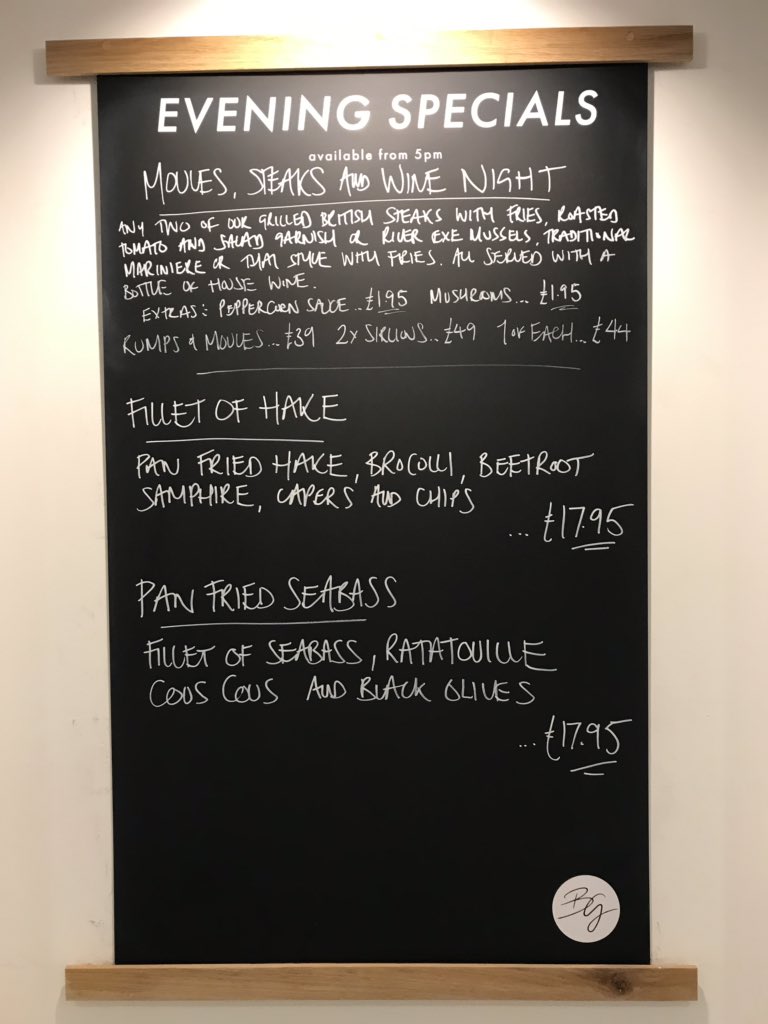 EVENING SPECIALS
available from 5pm
MOULES, STEAKS AND WINE NIGHT
ANY TWO OF OUR GRILLED BRITISH STEAKS WITH FRIES, ROASTED
TOMATO AND SALAD GARNISH OR RIVER EXE MUSSELS, TRADITIONAL
MARINIERE OR THAI STYLE WITH FRIES. ALL SERVED WITH A
BOTTLE OF HOUSE WINE.
EXTRAS: PEPPERCORN SAUCE...£1.95 MUSHROOMS...£1.95
RUMPS & MOULES...£39 2X SIRLIONS...£49 1 OF EACH...£44
FILLET OF HAKE
PAN FRIED HAKE, BROCOLLI, BEETROOT
SAMPHIRE, CAPERS AND CHIPS
...£17.95
PAN FRIED SEABASS
FILLET OF SEABASS, RATATOUILLE
COUS COUS AND BLACK OLIVES
...£17.95
BG